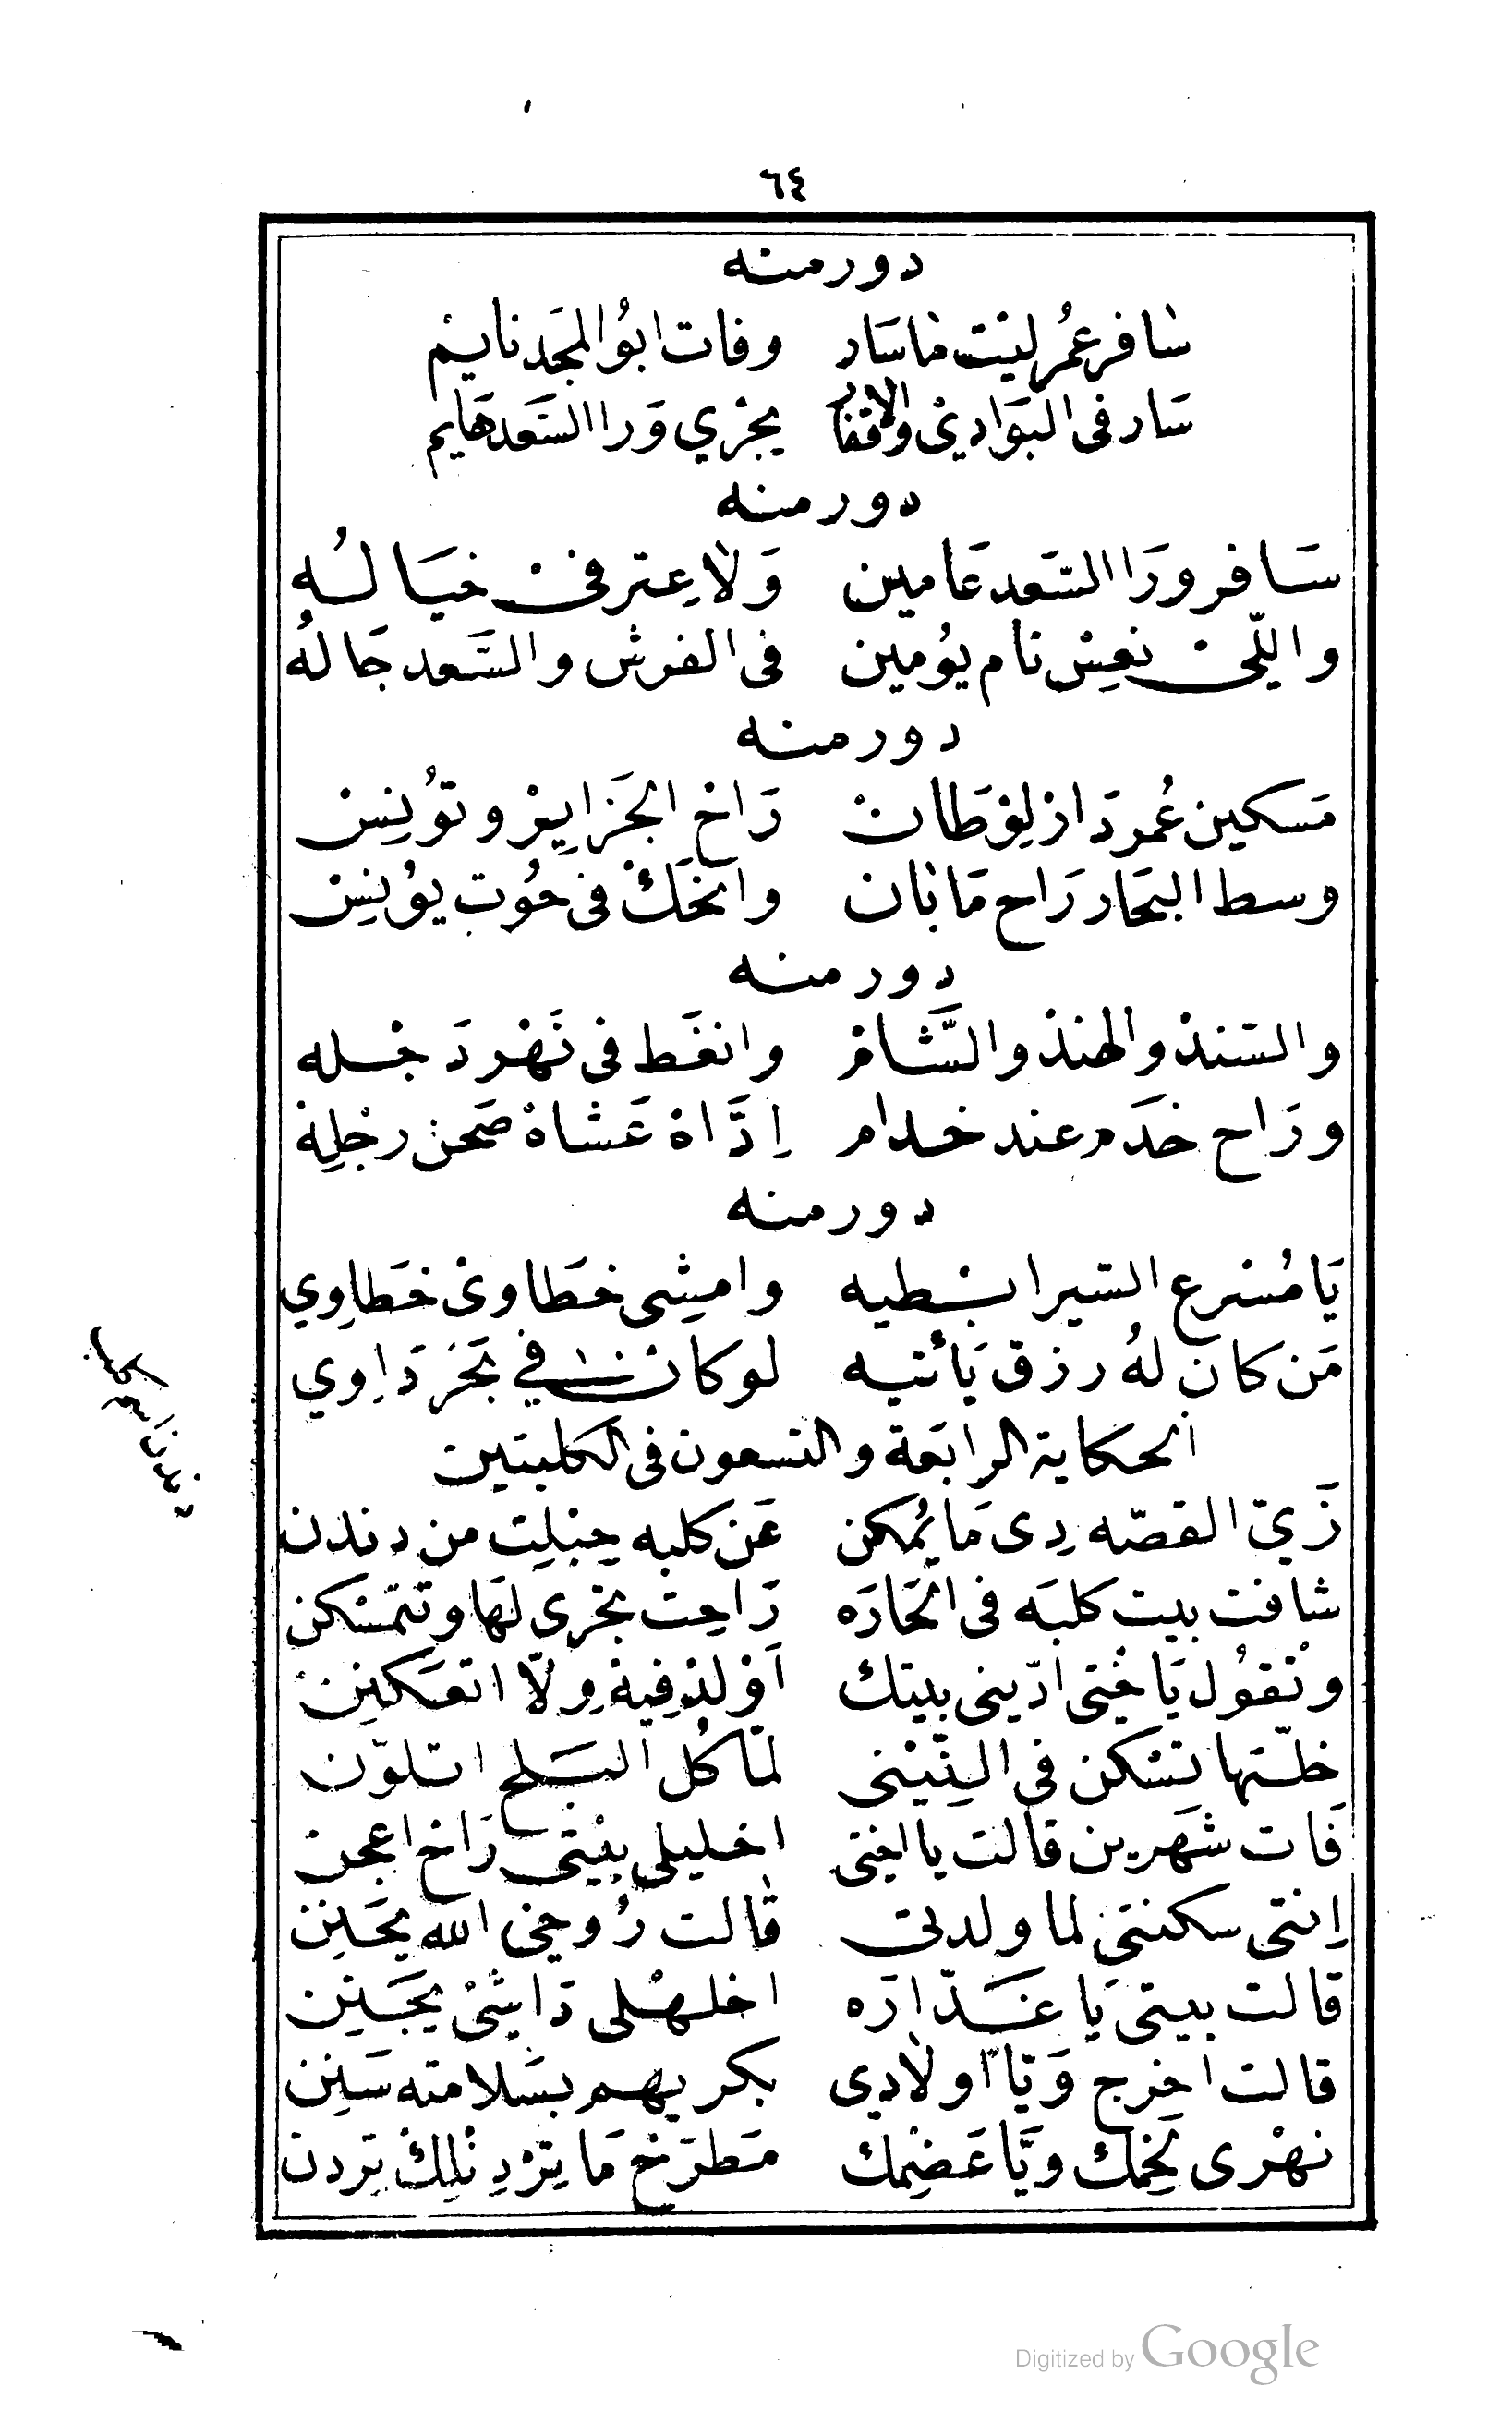 ٦٤
دور منه
سافر عُمر ليْت ما سَاد وفات ابوُ المجَد نايم
سَار فى البَوَادىْ والاقفاُر يجْري وَرا السَّعَد هَايم
دور منه
سَافر ورَا السَّعد عَامين وَلا عِتر فى خيَا لُه
واللّى نعِسْ نام يوُمين فى الفرش والسَّعد جَا لهُ
دور منه
مَسكين عُمر دَارْ لِوْطَانْ رَاحْ الجَزايِرْ وتوُنِسْ
وسط البحَار رَاح مَا بان وانحَكْ فى حُوت يوُنِسْ
دور منه
والسّندْ والهندْ والشَّامْ وانغَط فى نَهْر دَ جْله
ورَاح خدَم عند خدام اِدَّاهْ عَشاهْ صَحنْ رجْلِهْ
دور منه
يَا مُسْرع السّير ابْطيه وامشِى خطَاوىْ خطَاوِي
مَن كان لهُ رزق يَأتيه لو كانْ فى بحَرْ دَ اوِي
الحكاية الرابَعة والتسعون فى الكلبتين
زَيّ القصّه دِى مَا يُمكن عَن كلبه حِبْلِت من دندن
شافت بيت كلبَه فى الحَارَه رَاحِت تجْرى لهَا وتتمسْكن
وتْقوُل يَا خْتى ادّينى بيتك اَوْلدْ فِيهْ وِلّا اتعَكنِنْ
خلّتها تسْكن فى البِيْتى لمّا كُل البَلح اتلوّن
فَات شَهرين قالت يا اختى اخليلى بيْتى رَاحْ اعجن
اِنتى سكنتى لما ولدتى قالت رُوحى الله يحَنِنْ
قالت بيتى يَا غَدّارَه اخلهْلى دَا شىْ يجَنِنْ
قالت اخرج وَيّا اولادي بكر يهم بسَلامته سَنِنْ
نهْرى لَحْمك ويَّا عَضْمك مَطرَحْ مَا يِرْدِ نْلِكْ يردن